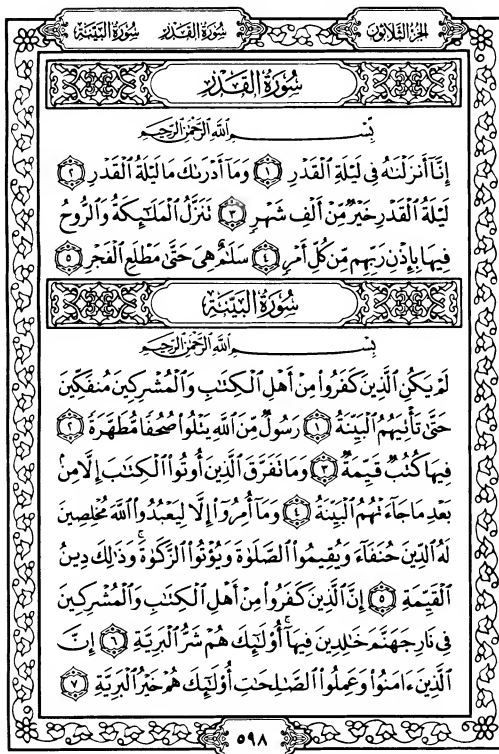 سُورَةُ البَيِّنَةِ سُورَةُ القَدْرِ الجُزْءُ الثَّلَاثُونَ
سُورَةُ القَدْرِ
بِسْمِ اللَّهِ الرَّحْمَٰنِ الرَّحِيمِ
إِنَّآ أَنزَلْنَٰهُ فِى لَيْلَةِ ٱلْقَدْرِ ١ وَمَآ أَدْرَىٰكَ مَا لَيْلَةُ ٱلْقَدْرِ ٢
لَيْلَةُ ٱلْقَدْرِ خَيْرٌ مِّنْ أَلْفِ شَهْرٍ ٣ تَنَزَّلُ ٱلْمَلَٰٓئِكَةُ وَٱلرُّوحُ
فِيهَا بِإِذْنِ رَبِّهِم مِّن كُلِّ أَمْرٍ ٤ سَلَٰمٌ هِىَ حَتَّىٰ مَطْلَعِ ٱلْفَجْرِ ٥
سُورَةُ البَيِّنَةِ
بِسْمِ اللَّهِ الرَّحْمَٰنِ الرَّحِيمِ
لَمْ يَكُنِ ٱلَّذِينَ كَفَرُوا۟ مِنْ أَهْلِ ٱلْكِتَٰبِ وَٱلْمُشْرِكِينَ مُنفَكِّينَ
حَتَّىٰ تَأْتِيَهُمُ ٱلْبَيِّنَةُ ١ رَسُولٌ مِّنَ ٱللَّهِ يَتْلُوا۟ صُحُفًا مُّطَهَّرَةً ٢
فِيهَا كُتُبٌ قَيِّمَةٌ ٣ وَمَا تَفَرَّقَ ٱلَّذِينَ أُوتُوا۟ ٱلْكِتَٰبَ إِلَّا مِنۢ
بَعْدِ مَا جَآءَتْهُمُ ٱلْبَيِّنَةُ ٤ وَمَآ أُمِرُوٓا۟ إِلَّا لِيَعْبُدُوا۟ ٱللَّهَ مُخْلِصِينَ
لَهُ ٱلدِّينَ حُنَفَآءَ وَيُقِيمُوا۟ ٱلصَّلَوٰةَ وَيُؤْتُوا۟ ٱلزَّكَوٰةَ ۚ وَذَٰلِكَ دِينُ
ٱلْقَيِّمَةِ ٥ إِنَّ ٱلَّذِينَ كَفَرُوا۟ مِنْ أَهْلِ ٱلْكِتَٰبِ وَٱلْمُشْرِكِينَ
فِى نَارِ جَهَنَّمَ خَٰلِدِينَ فِيهَآ ۚ أُو۟لَٰٓئِكَ هُمْ شَرُّ ٱلْبَرِيَّةِ ٦ إِنَّ
ٱلَّذِينَ ءَامَنُوا۟ وَعَمِلُوا۟ ٱلصَّٰلِحَٰتِ أُو۟لَٰٓئِكَ هُمْ خَيْرُ ٱلْبَرِيَّةِ ٧
٥٩٨